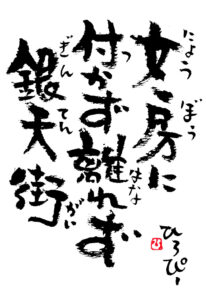 女房に
付かず離れず
銀天街
にょうぼう
つ
はな
ぎんてんがい
ひろぴー